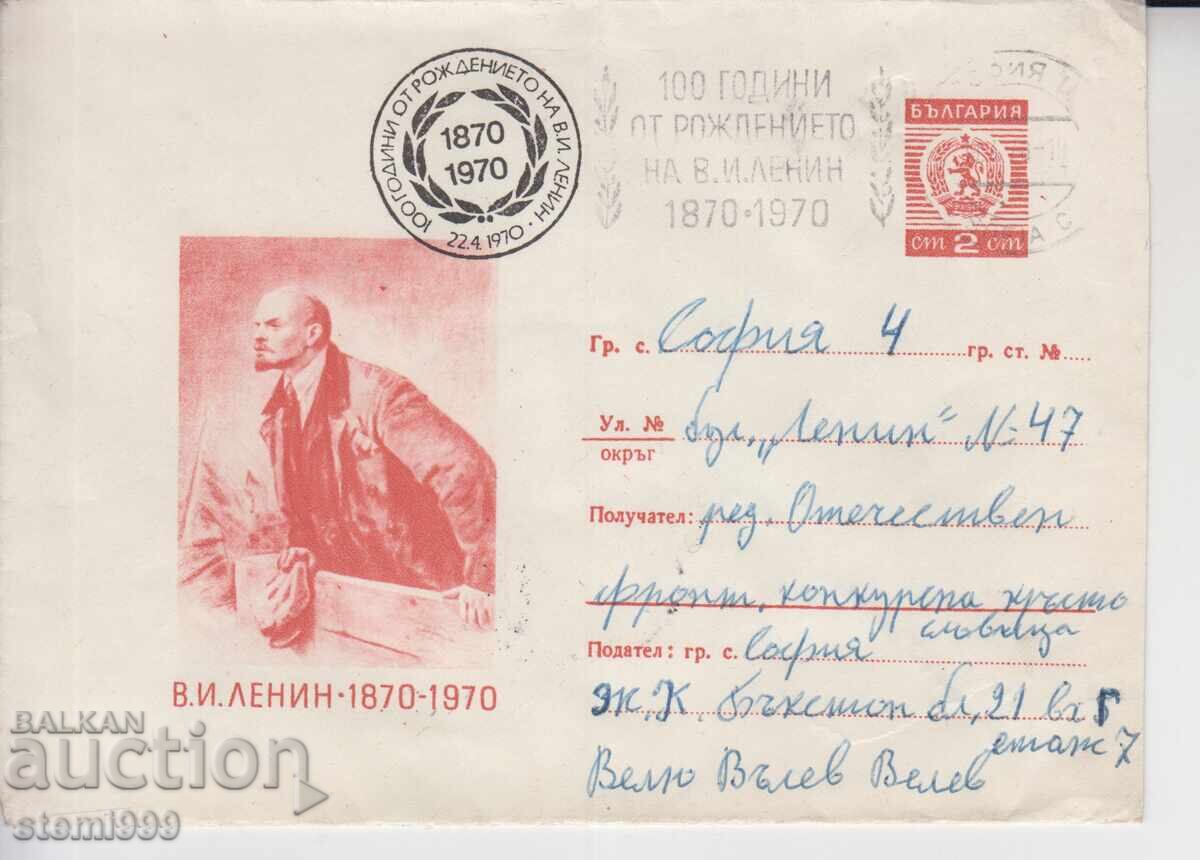 100 ГОДИНИ ОТ РОЖДЕНИЕТО НА В.И. ЛЕНИН
1870
1970
22.4.1970
100 ГОДИНИ
ОТ РОЖДЕНИЕТО
НА В.И.ЛЕНИН
1870•1970
БЪЛГАРИЯ
ст 2 ст
Гр. с. София 4 гр. ст. №
Ул. № бул. „Ленин“ № 47
окръг
Получател: ред. Отечествен
фронт, конкурсна кръсто
словица
Подател: гр. с. София
Ж.К. Бъкстон бл. 21 вх Г
етаж 7
Велю Вълев Велев
В.И.ЛЕНИН•1870-1970
BALKAN
auction
stomi999